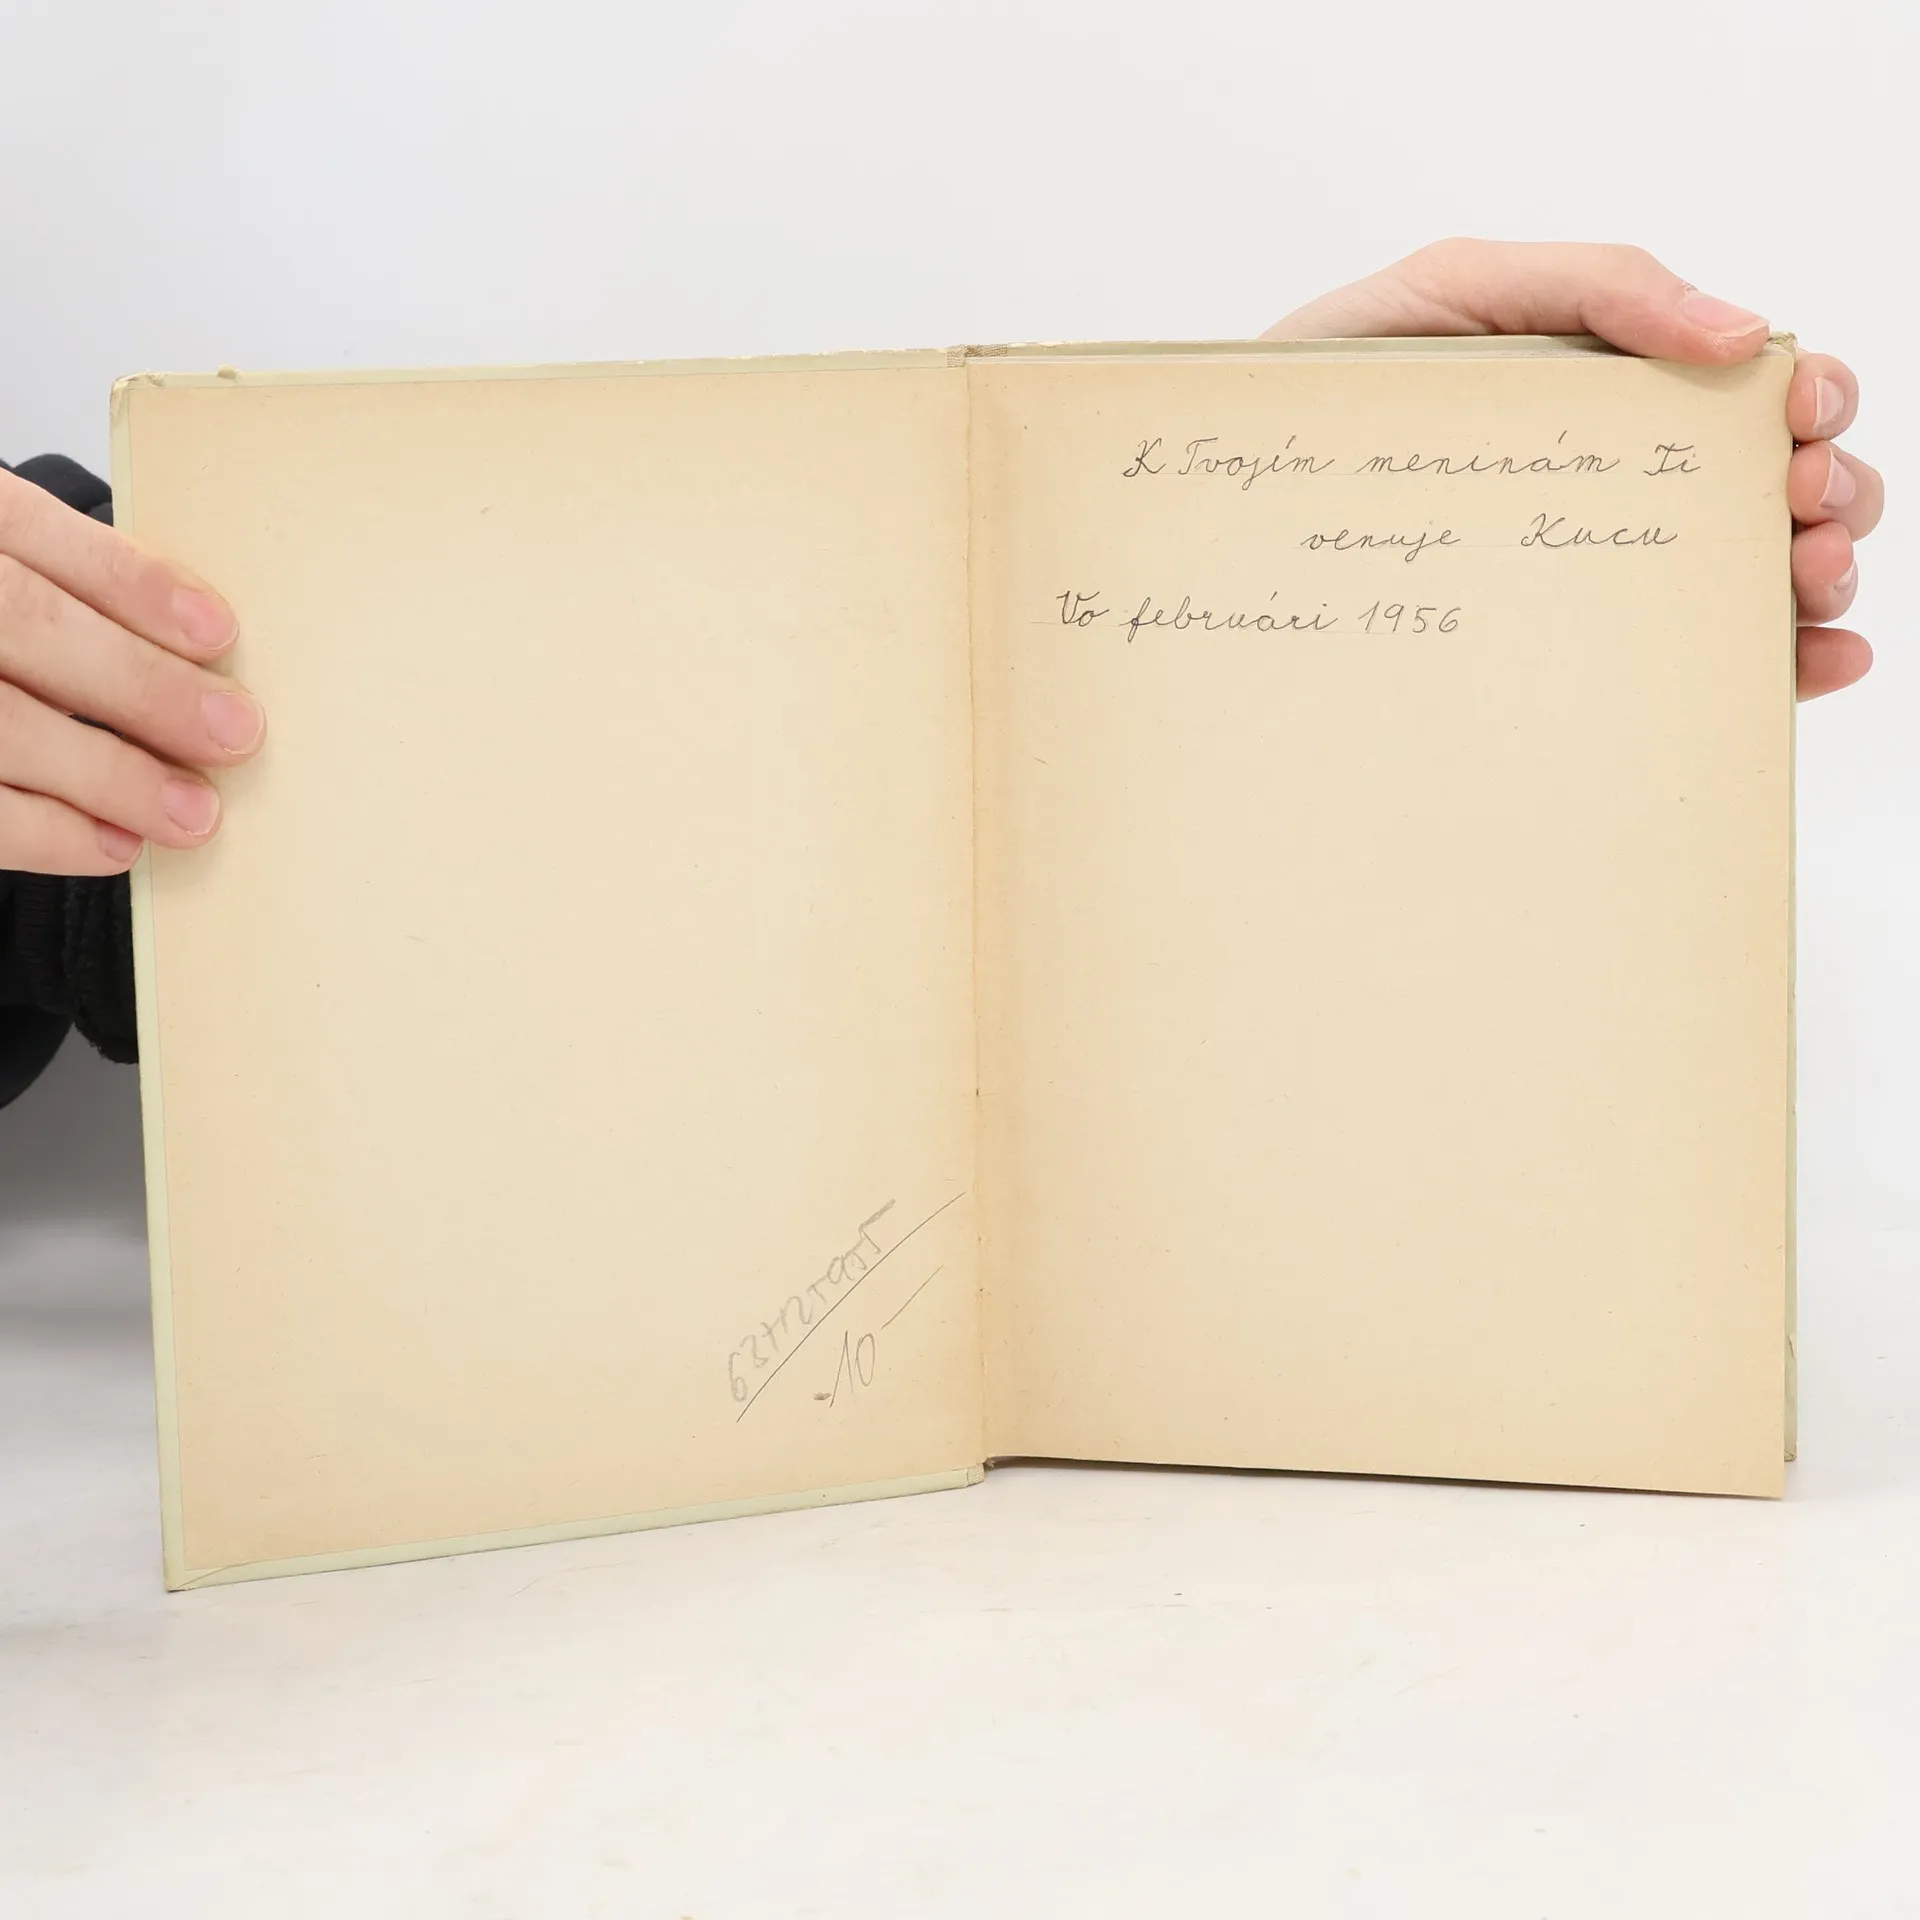 -10-
K Tvojím meninám Ti
venuje Kucu
Vo februári 1956